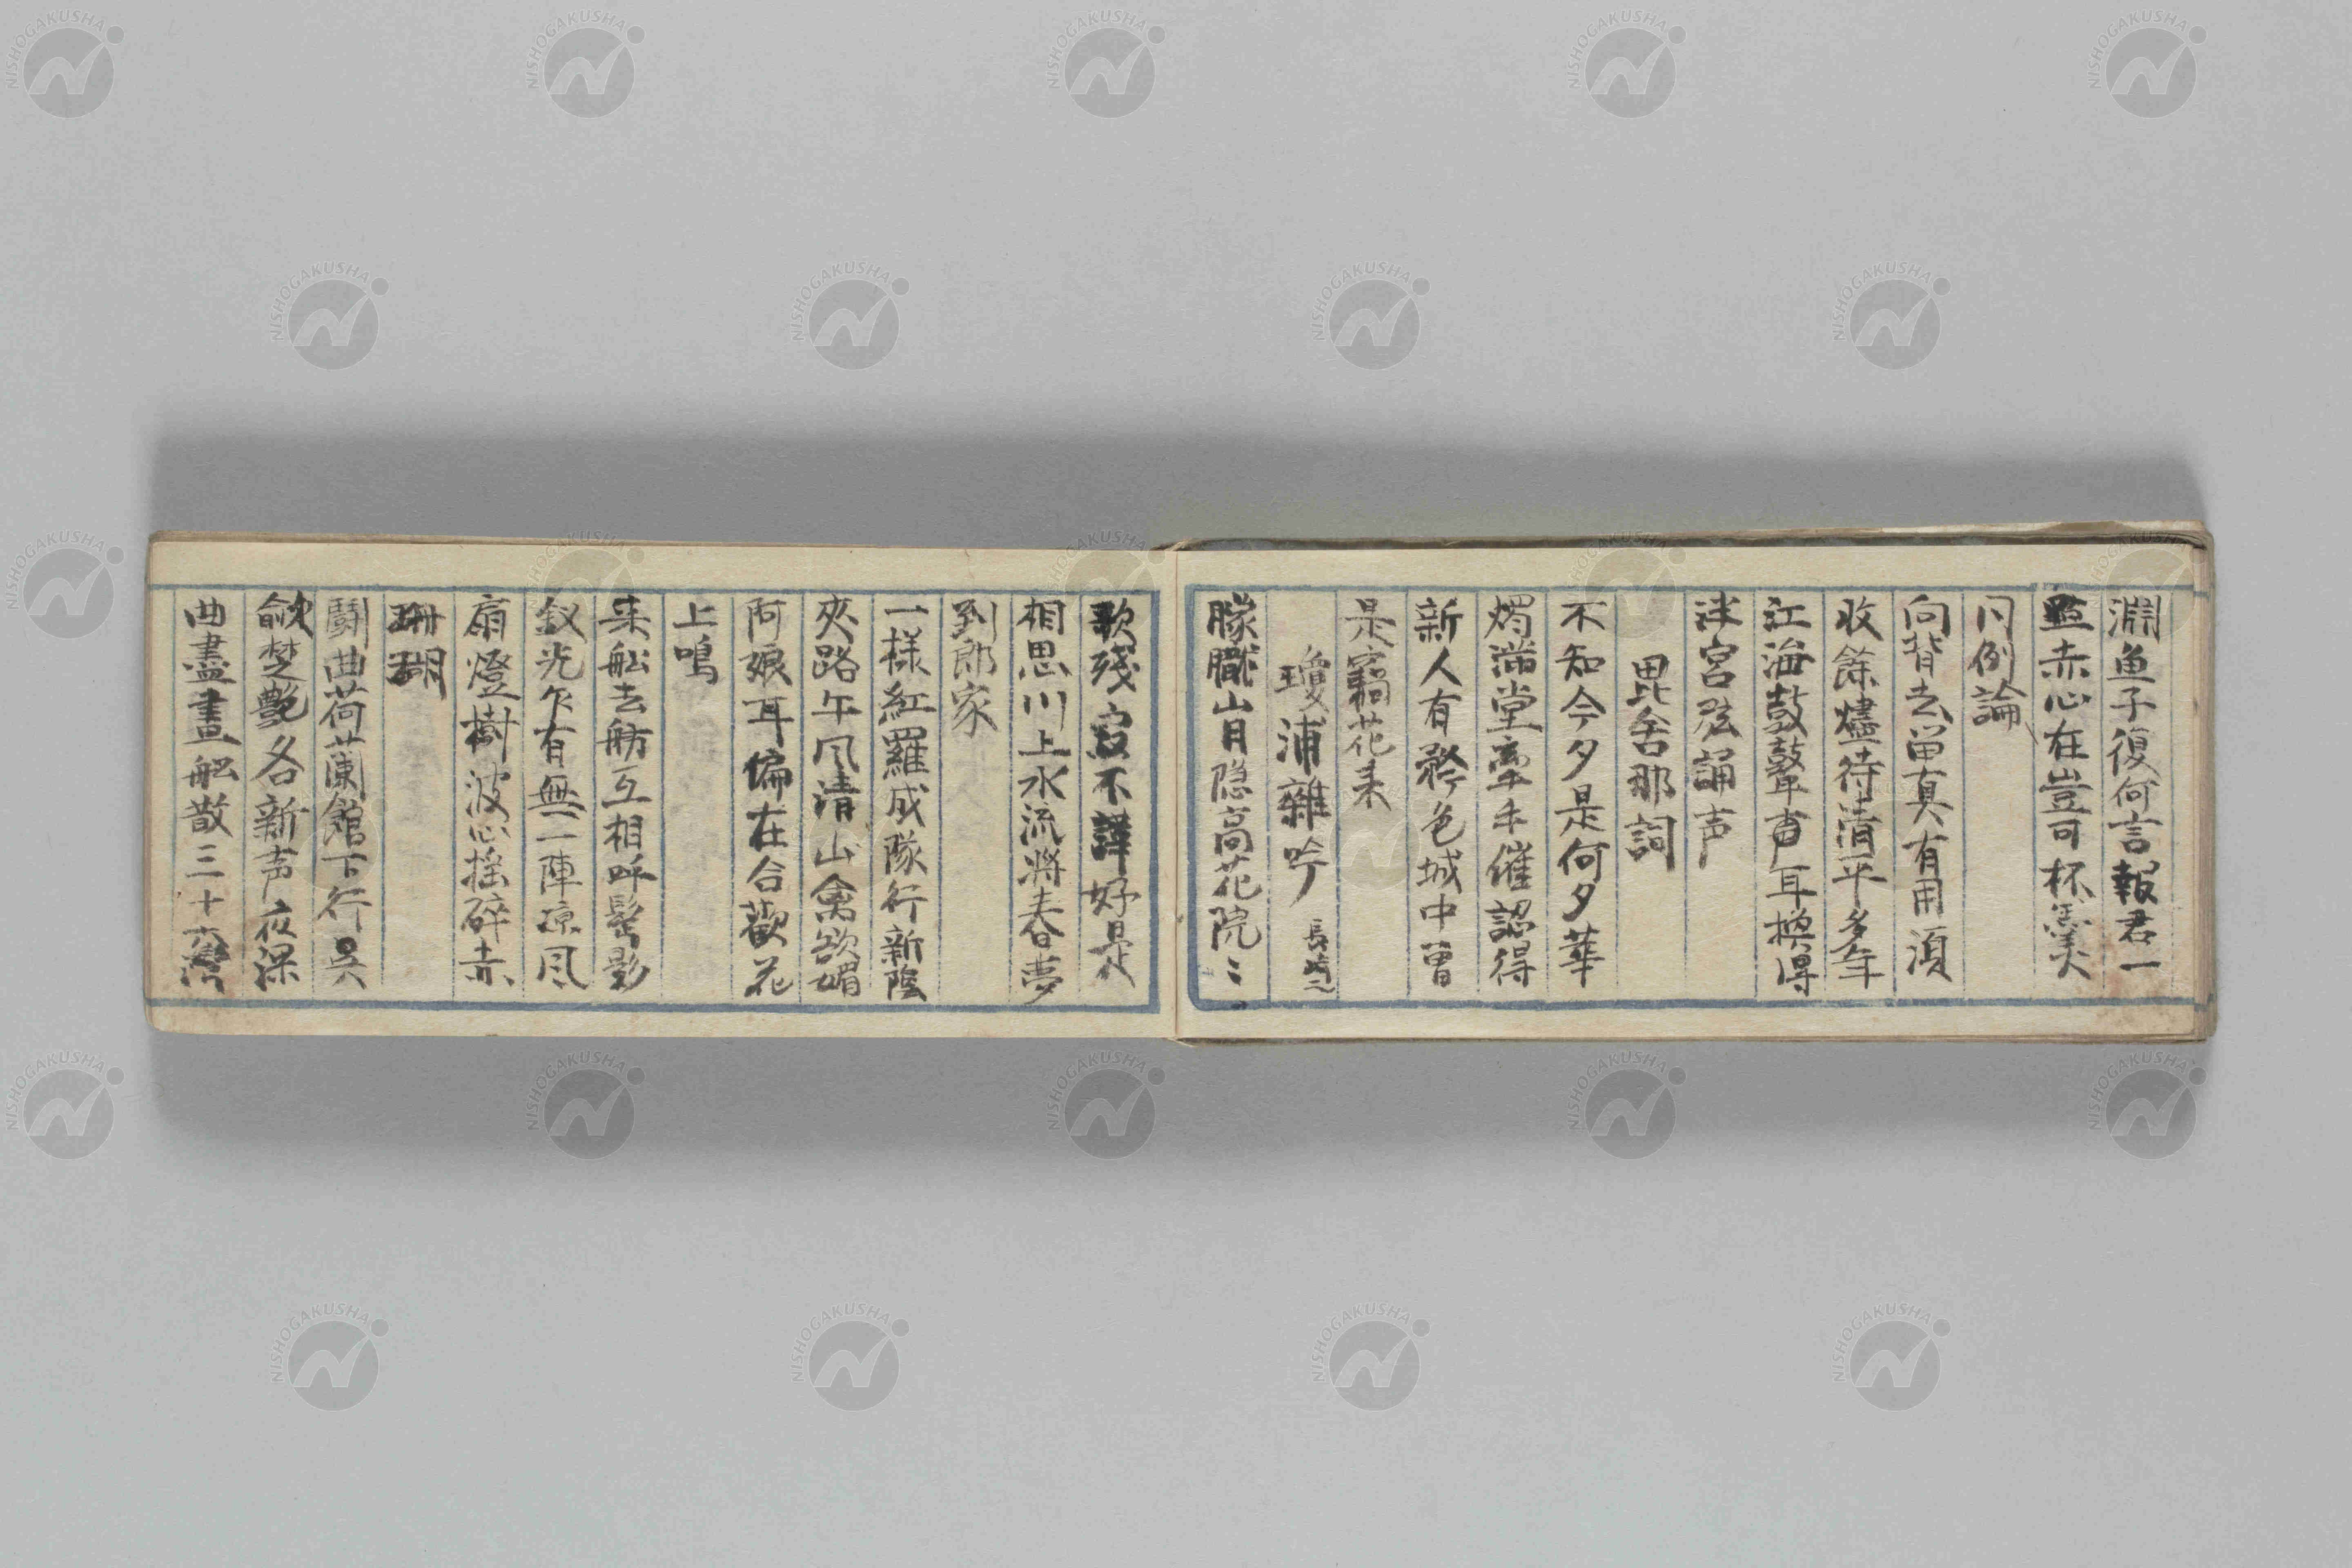 淵魚子復何言報君一
點赤心在豈可杯羹
同例論
向背去留真有用須
收餘燼待清平多年
江海鼓鼙声耳換得
泮宮弦誦声
毘舍那詞
不知今夕是何夕華
燭満堂牽手催認得
新人有矜色城中曽
是竊花来
瓊浦雜吟 長崎
朦朧山月隠高花院〻
歌残寂不譁好是
相思川上水流将春夢
到郎家
一様紅羅成隊行新陰
夾路午风清山禽欲媚
阿娘耳偏在合歡花
上鳴
来舩去舫互相呼髩影
釵光乍有無一陣凉风
扇燈樹波心揺砕赤
珊瑚
鬪曲荷蘭舘下行呉
歈楚艶各新声夜深
曲盡畫舩散三十六湾
NISHOGAKUSHA